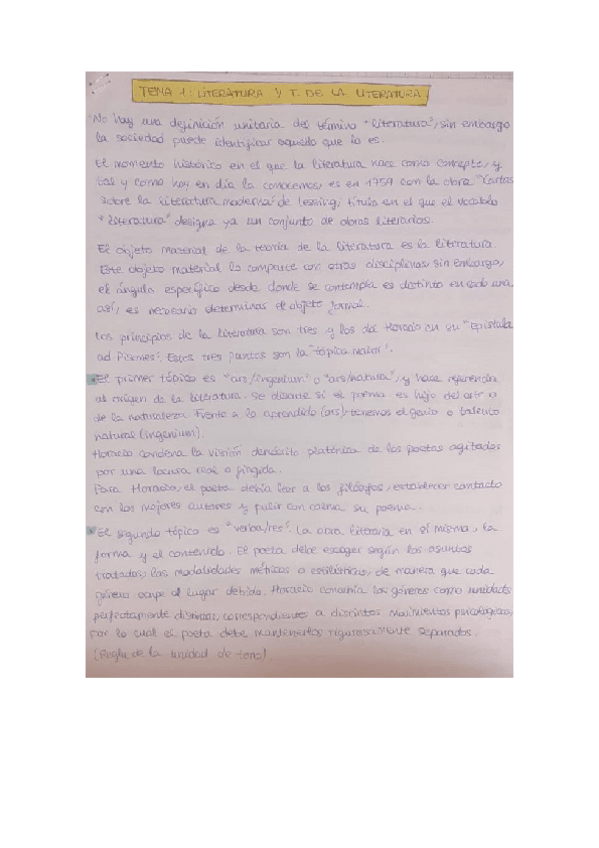 TEMA 1: LITERATURA Y T. DE LA LITERATURA
No hay una definición unitaria del término "literatura", sin embargo
la sociedad puede identificar aquello que lo es.
El momento histórico en el que la literatura nace como concepto, y
tal y como hoy en día la conocemos, es en 1759 con la obra "Cartas
sobre la literatura moderna" de Lessing, título en el que el vocablo
"literatura" designa ya un conjunto de obras literarias.
El objeto material de la teoría de la literatura es la literatura.
Este objeto material lo comparte con otras disciplinas, sin embargo,
el ángulo específico desde donde se contempla es distinto en cada una,
así, es necesario determinar el objeto formal.
Los principios de la literatura son tres y los da Horacio en su "Epistula
ad Pisones". Estos tres puntos son la "tópica maior".
El primer tópico es "ars/ingenium" o "ars/natura", y hace referencia
al origen de la literatura. Se discute si el poema es hijo del arte o
de la naturaleza. Frente a lo aprendido (ars) tenemos el genio o talento
natural (ingenium).
Horacio condena la visión platónica de los poetas agitados
por una locura real o fingida.
Para Horacio, el poeta debía leer a los filósofos, establecer contacto
con los mejores autores y pulir con calma su poema.
El segundo tópico es "verba/res". La obra literaria en sí misma, la
forma y el contenido. El poeta debe escoger según los asuntos
tratados, las modalidades métricas o estilísticas, de manera que cada
género ocupe el lugar debido. Horacio concebía los géneros como unidades
perfectamente distintas, correspondientes a distintos movimientos psicológicos,
por lo cual el poeta debe mantenerlos rigurosamente separados.
(Regla de la unidad de tono).